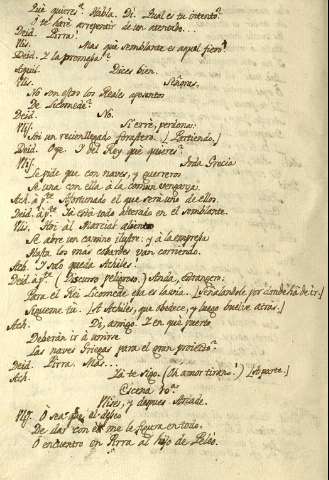 Què quieres? Habla. Di. Qual es tu intento?
O te harè arrepentir de un atentado...
Deid. Pirra!
Ulis. Mas què semblante es aquel fiero?
Deid. Y la promesa?
Aquil. Dices bien.
Ulis. Señoras,
No son estos los Reales aposentos
De Licomede?
Deid. No.
Ulis. Si errè, perdona:
Soi un recienllegado forastero. [Partiendo.]
Deid. Oye. Y del Rey què quieres?
Ulis. Anda Grecia
Le pide que con naves, y guerreros
Se una con ella à la comun venganza.
Ach. à p.te Afortunado el que serà uno de ellos.
Deid. à p.te Ya està todo alterado en el semblante.
Ulis. Hoi al Marcial aliento
Se abre un camino ilustre: y à la empresa
Hasta los màs cobardes van corriendo.
Ach. Y solo queda Achiles!
Deid. à p.te (Discurso peligroso.) Anda, estrangero:
Para el Rei Licomede esa es la via. [Señalandole por donde ha de ir.]
Sigueme tu. [A Achiles, que obedece, y luego buelve atras.]
Ach. Di, amigo: Y en què puerto
Deberàn ir à unirse
Las naves Griegas para el gran proiecto?
Deid. Pirra. Mas..
Ach. Ya te sigo. (Ah amor tirano!) [Aparte.]
Escena 10.a
Ulises, y despues Arcade.
Ulis. O sea que el deseo
De dar con èl me le figura en todo,
O encuentro en Pirra al hijo de Peleo.